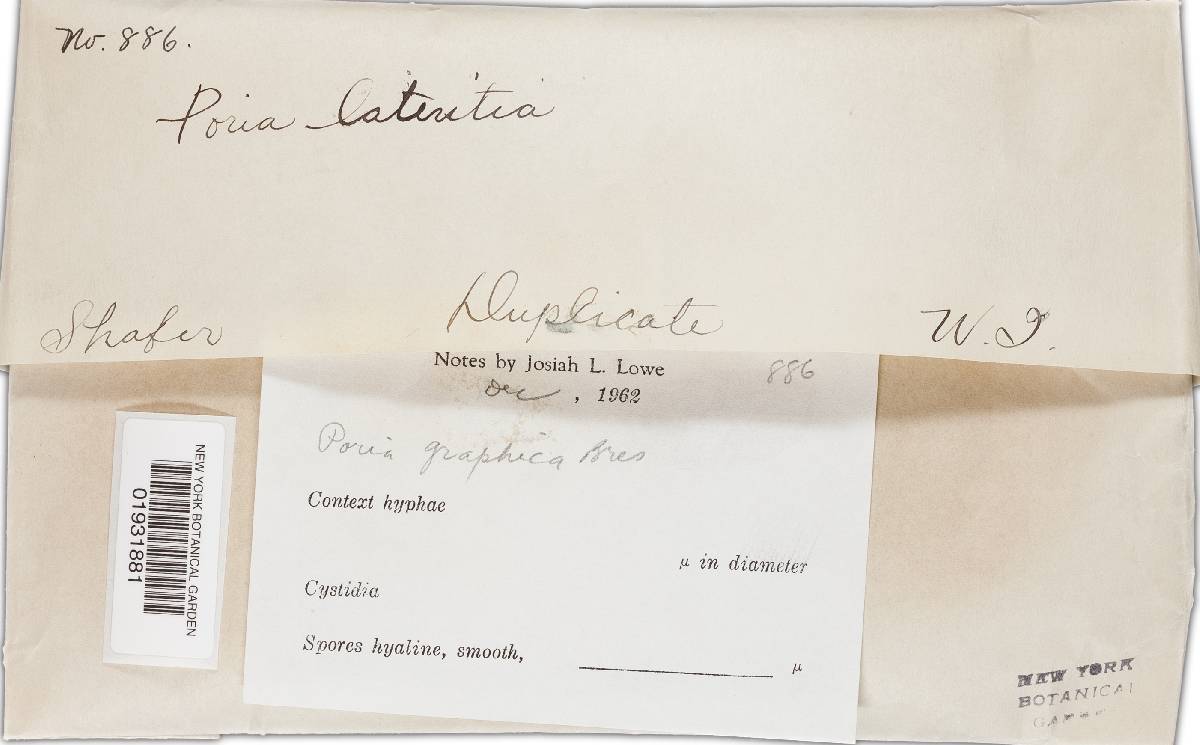 No. 886.
Poria lateritia
Duplicate
Shafer
W. I.
Notes by Josiah L. Lowe
886
, 1962
Poria graphica Bres
Context hyphae
µ in diameter
Cystidia
Spores hyaline, smooth, µ
NEW YORK BOTANICAL GARDEN
01931881
NEW YORK
BOTANICAL